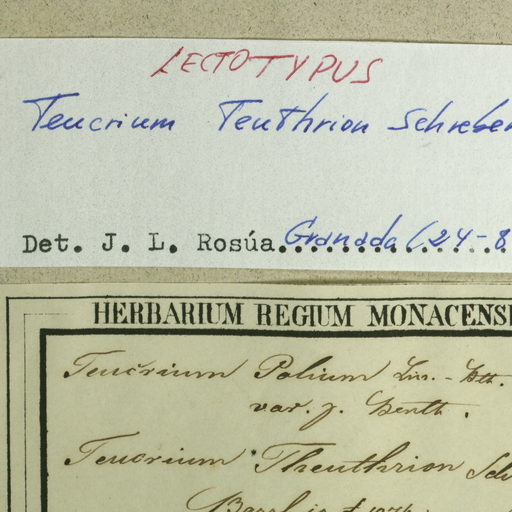 LECTOTYPUS
Teucrium Teuthrion Schreber
Det. J. L. Rosúa. Granada (24-8
HERBARIUM REGIUM MONACENS
Teucrium Polium Lin. - Bth.
var. γ. Benth.
Teucrium Theuthrion Sch